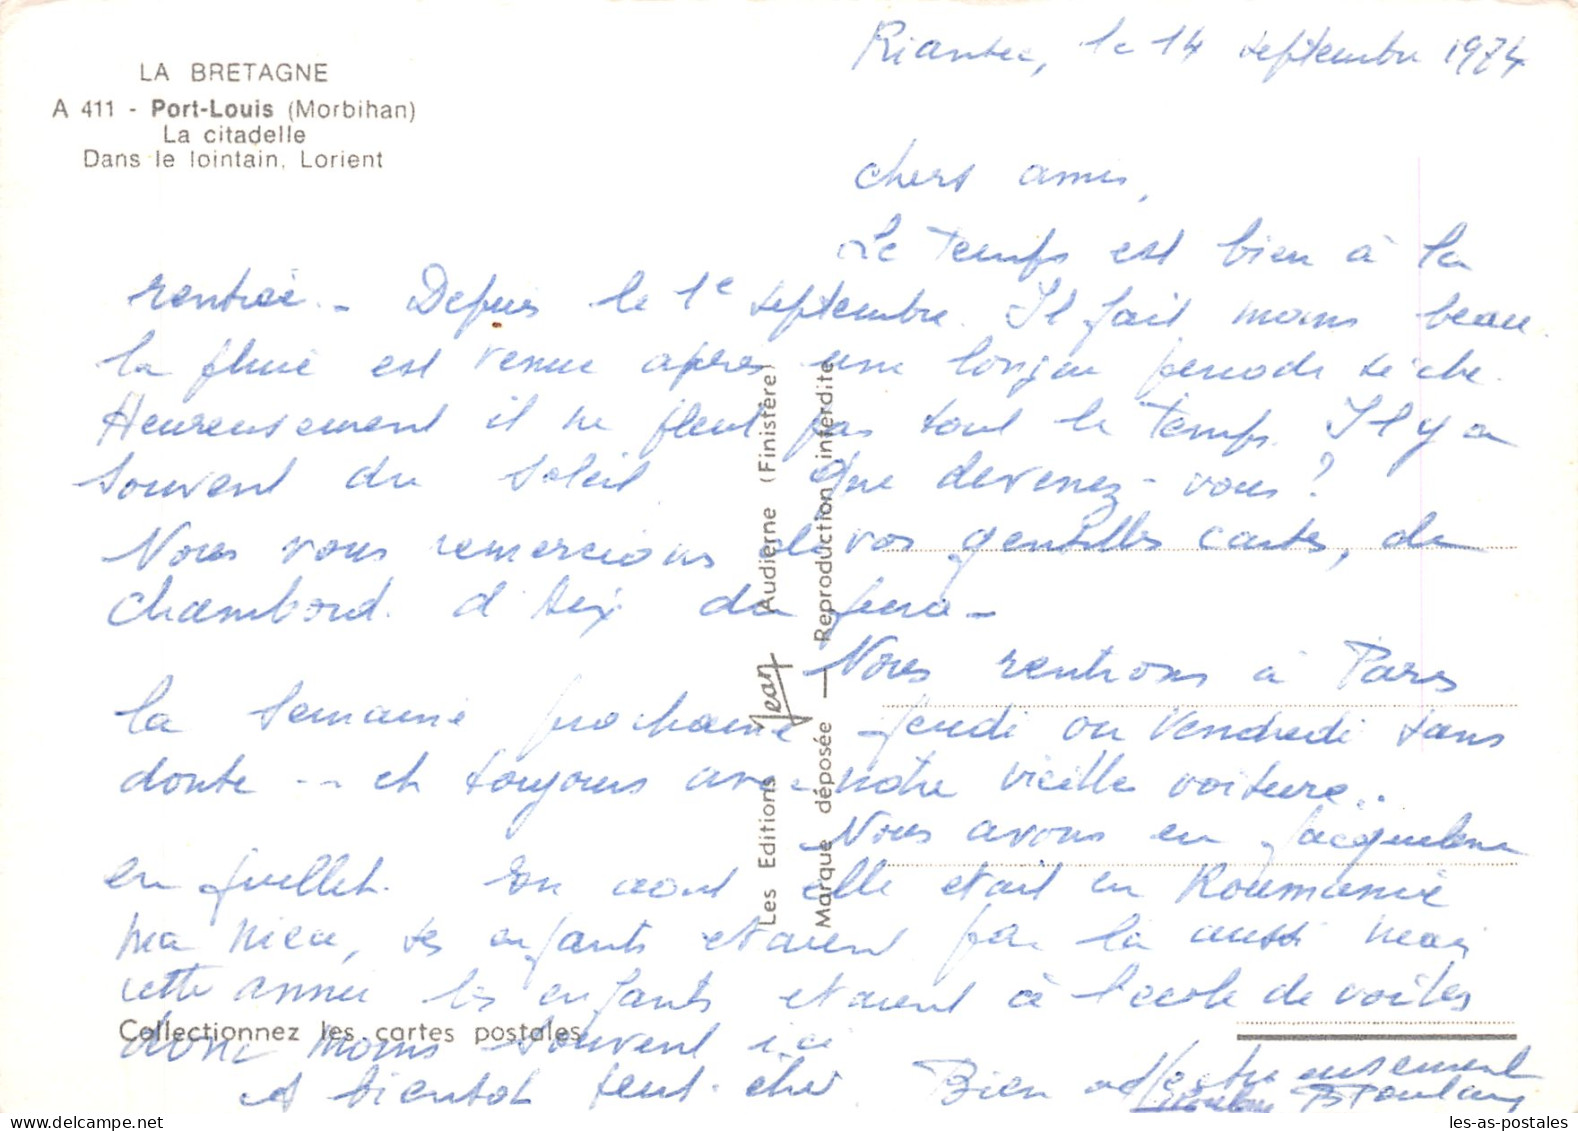 LA BRETAGNE
A 411 - Port-Louis (Morbihan)
La citadelle
Dans le lointain, Lorient
Riantec, le 14 septembre 1974
chers amis,
Le temps est bien à la
rentrée - Depuis le 1e septembre. Il fait moins beau
la pluie est venue après une longue période sèche.
Heureusement il ne pleut pas tout le temps. Il y a
souvent du soleil. Que devenez-vous ?
Nous vous remercions de vos gentilles cartes, de
chambord. d' du Jura -
Nous rentrons à Paris
la semaine prochaine jeudi ou vendredi sans
doute -- et toujours avec notre vieille voiture..
Nous avons eu Jacqueline
en juillet. En août elle était en Roumanie
ma nièce, ses enfants étaient par là aussi mais
cette année les enfants étaient à l'école de voiles
donc moins souvent ici
A bientôt peut-être Bien affectueusement
Les Editions Jean Audierne (Finistère)
Marque déposée — Reproduction interdite
Collectionnez les cartes postales
les-as-postales.com